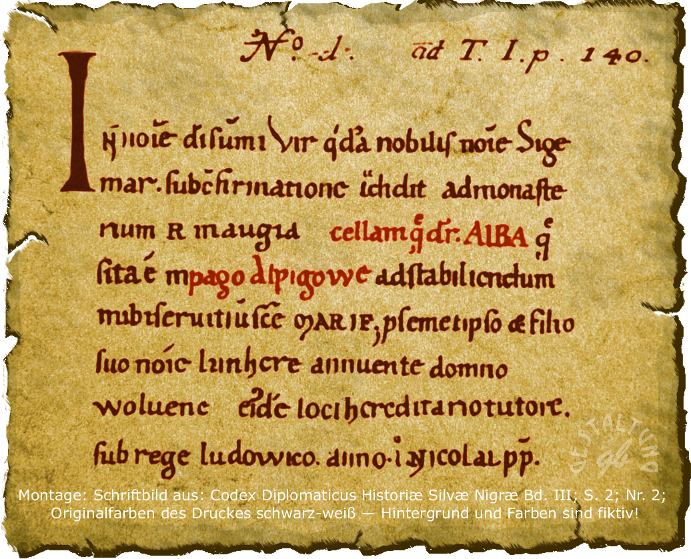 Nº. d. ad T. I. p. 140.
In noīe dn̄i sum̄i Vir q̇dā nobilis noīe Sige
mar. sub c̄firmatione t̄dit ad monaste
rium R maugia cellam q̄ dr̄. AlBA q̄
sita ē in pago dipigowe ad stabiliendum
nubi seruitiū sc̄e MARIE, p semetipso & filio
suo noīe lunhere annuente domno
woluene eīdē loci hereditario tutore.
sub rege ludowico. anno. i Nicolai pp̄.
GESTALTUNG
gb
Montage: Schriftbild aus: Codex Diplomaticus Historiæ Silvæ Nigræ Bd. III; S. 2; Nr. 2;
Originalfarben des Druckes schwarz-weiß — Hintergrund und Farben sind fiktiv!